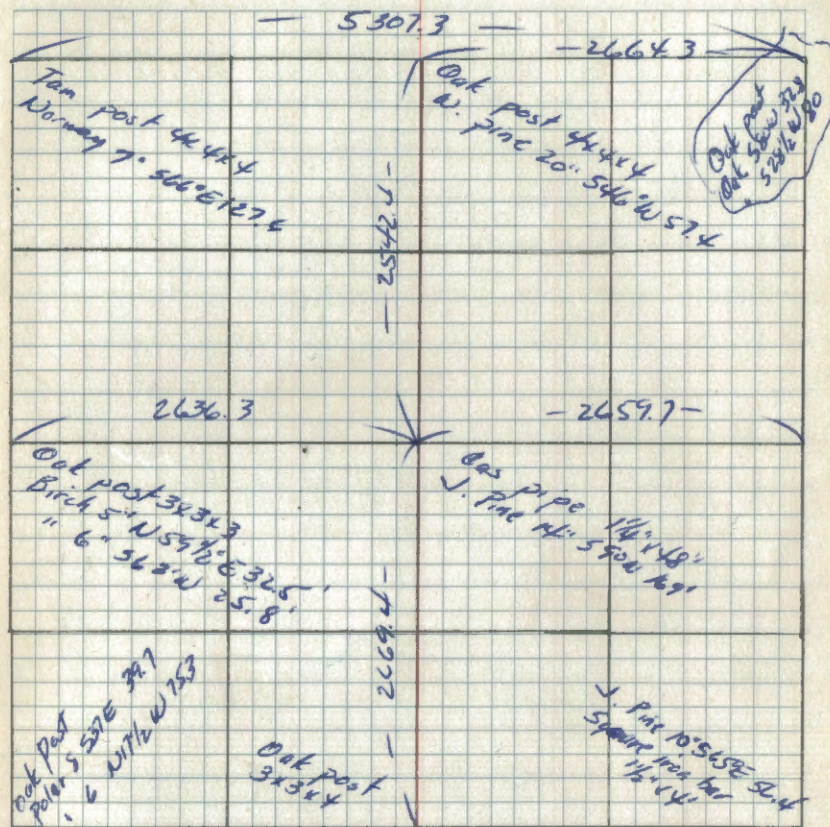 — 5307.3 —
— 2664.3 —
Tam post 4x4x4
Norway 7" S66°E 127.4
Oak post 4x4x4
N. Pine 20" S46°W 57.4
Oak post
Oak
S28½W 80
— 2542.4 —
2636.3
— 2659.7 —
Oak post 3x3x3
Birch 5" N59½°E 32.5'
" 6" S68°W 25.8'
Gas pipe 1¼"x48"
J. Pine 14"
— 2669.4 —
Oak Post
Polar 8 S37E 39.7
" 6 N17½W 153
Oak post
3x3x4
J. Pine 10" S65°E 56.4
Square iron bar
1½"x4'